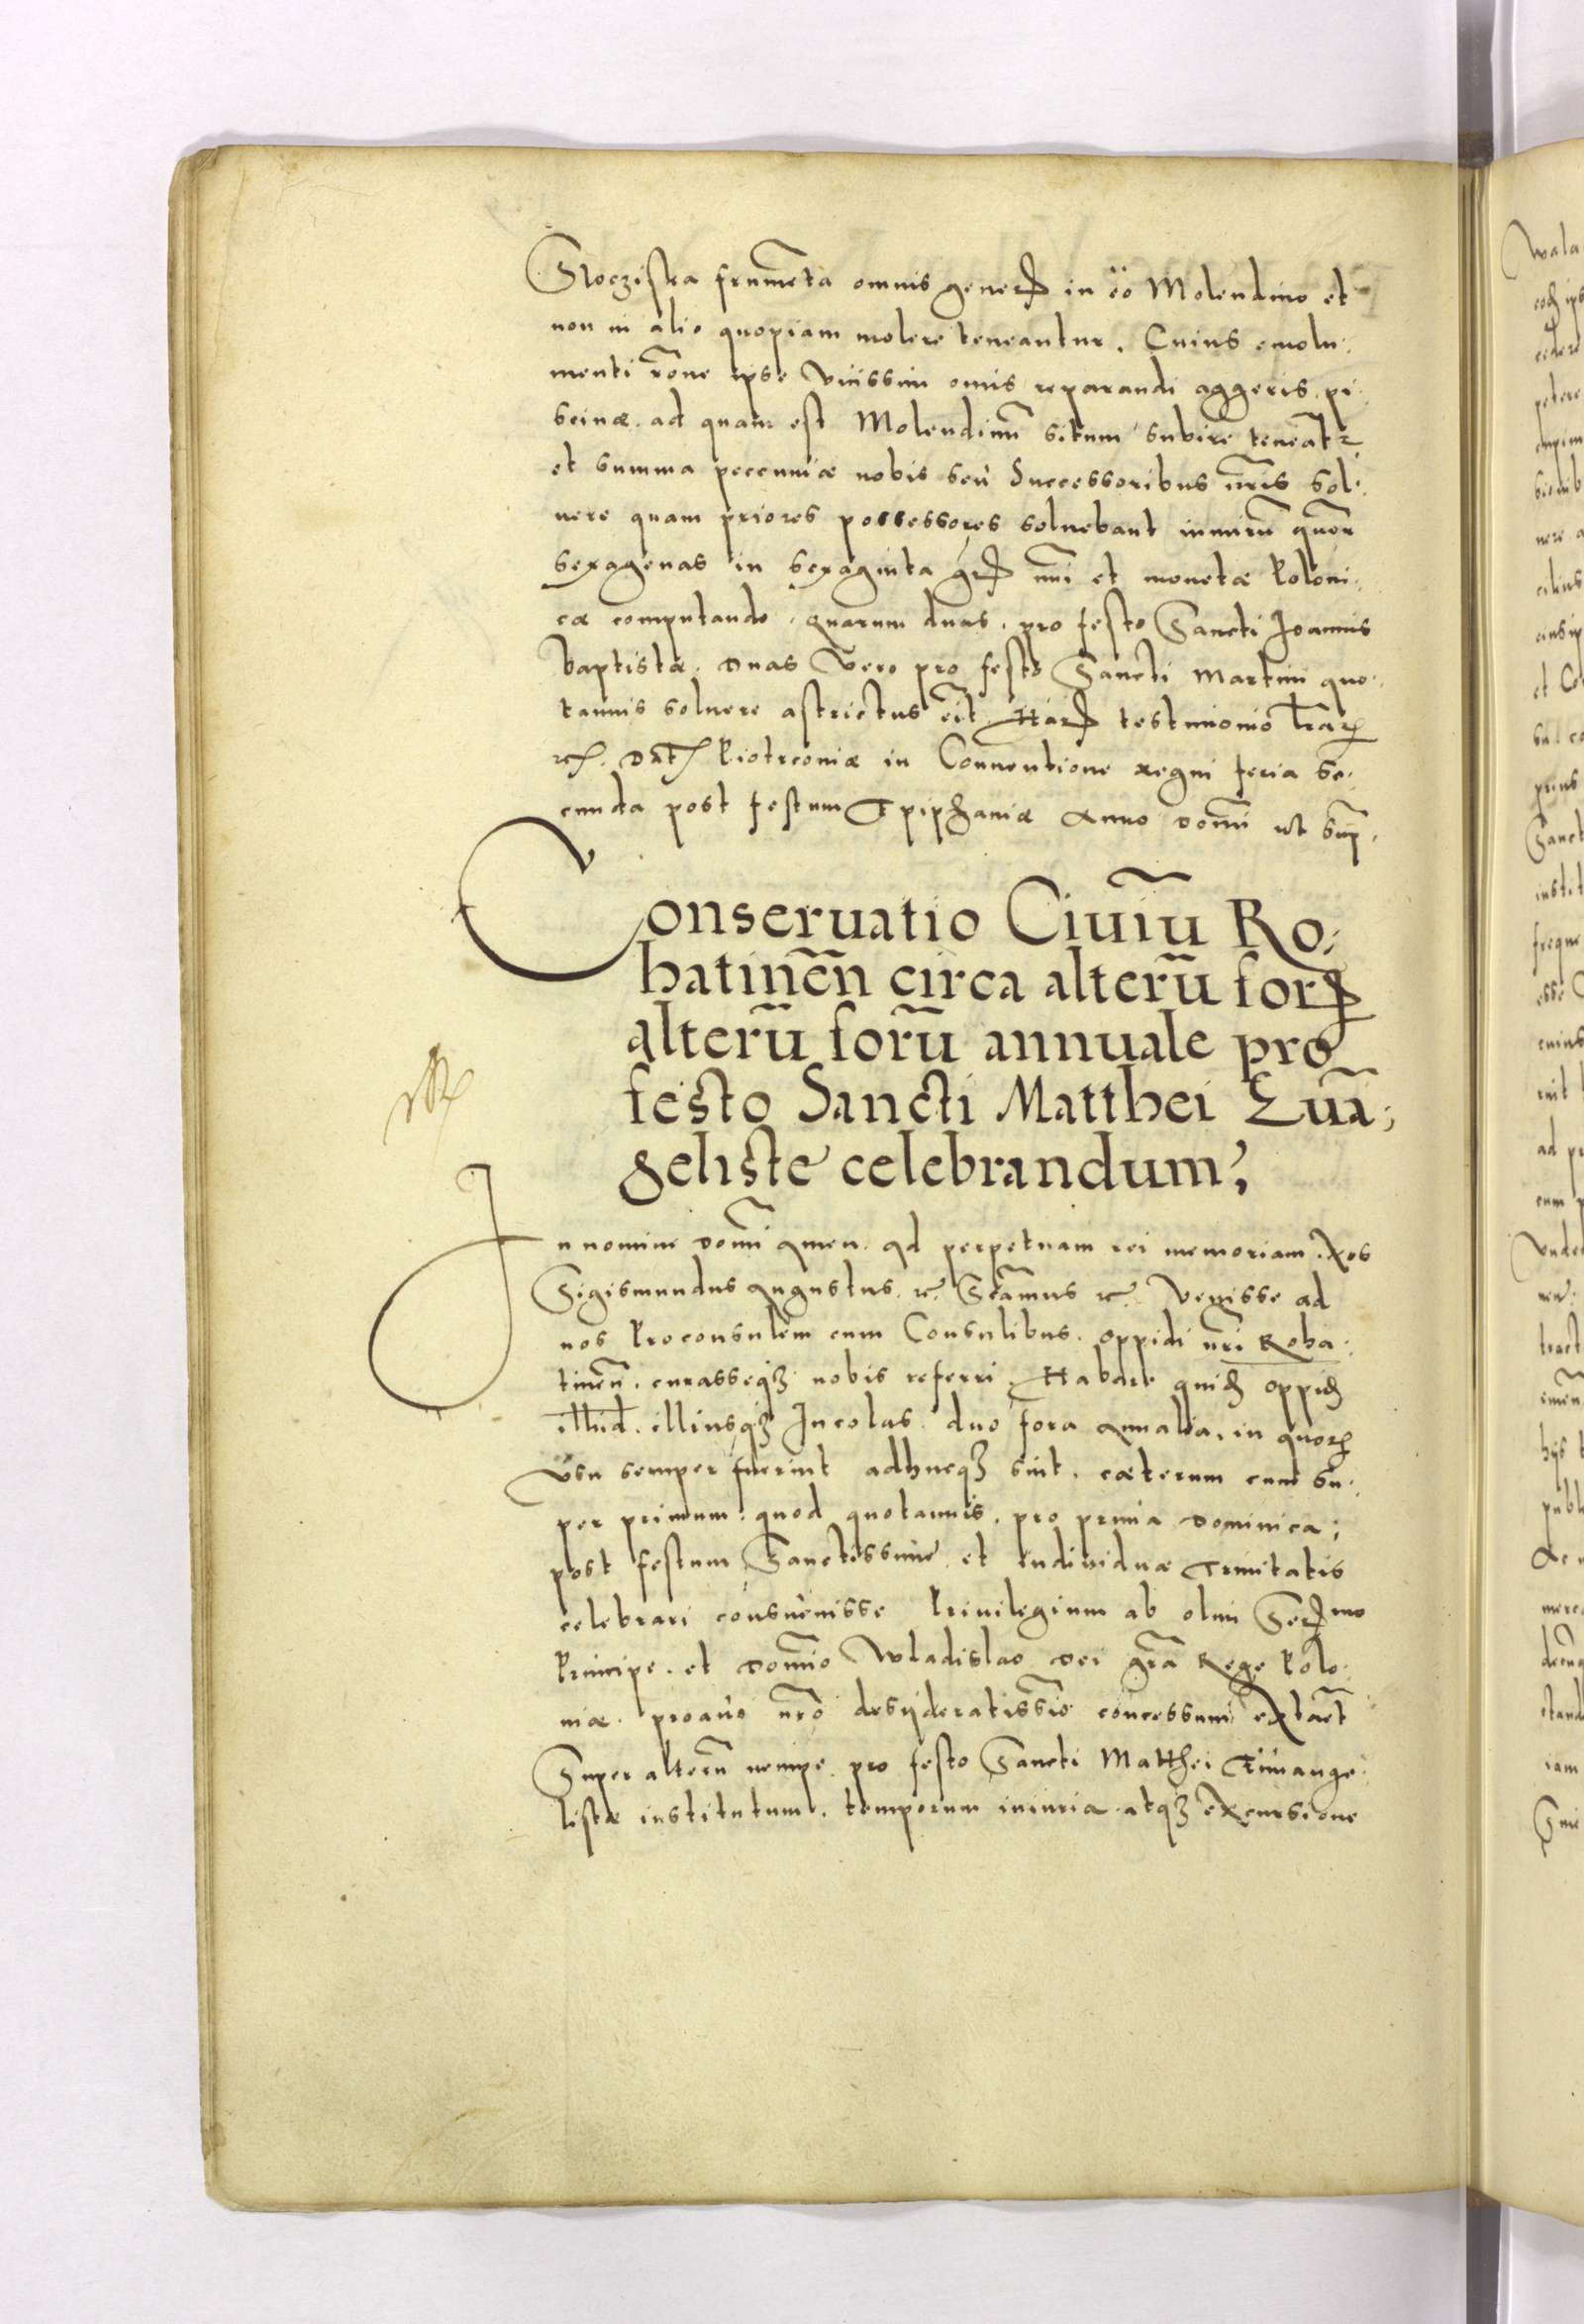 Sloeziska frumēta omnis generꝭ in eo Molendino et
non in alio quopiam molere teneantur. Cuius emolu-
menti rōne ipse vicissim onus reparandi aggeris pi-
scinæ ad quam est Molendinū situm subire teneat̃
et summa peccuniæ nobis seu Successoribus nr̃is sol-
uere quam priores possessores soluebant nimirū
sexagenas in sexaginta grꝭ nūi et monetæ Poloni-
cæ computando. quarum duas pro festo Sancti Joannis
baptistæ. duas vero pro festo Sancti Martini quo-
tannis soluere astrictus erit. Harꝭ testimonio l̃rar̃
rc̃. Dat̃ Piotrconiæ in Conuentione regni feria se-
cunda post festum Epiphaniæ Anno Domī ut sup̃.
Conseruatio Ciuiū Ro-
hatinēn circa alterū forꝭ
alterū forū annuale pro
festo Sancti Matthei Euā-
geliste celebrandum,
In nomine Domī Amen. Ad perpetuam rei memoriam. Nos
Sigismundus Augustus. rc̃. Scāmus rc̃. Venisse ad
nos Proconsulem cum Consulibus. oppidi nr̃i Roha-
tinēn. curasseqꝫ nobis referri. Habere quid̃ oppid̃
illud. illiusqꝫ Incolas. duo fora Annalia, in quor̃
vsu semper fuerint adhucqꝫ sint. cæterum cum su-
per primum. quod quotannis. pro prima Dominica,
post festum Sanctissime et indiuiduæ Trinitatis
celebrari consueuisse Priuilegium ab olim Serꝭmo
Principe. et Domīo Wladislao Dei grā Rege Polo-
niæ. proauo nr̃o desyderatissīo concessum extaēt
Super alterū nempe pro festo Sancti Matthei Euuange-
listæ institutum. temporum iniuria atqꝫ excursione